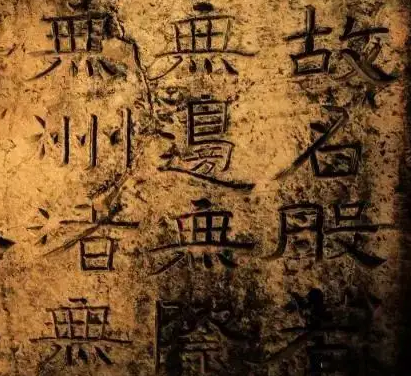 故名般若
無邊無際
無洲渚無